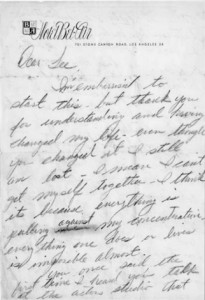 Hotel Bel-Air
701 STONE CANYON ROAD, LOS ANGELES 24
Dear Lee,
I'm embarrised to
start this - but thank you
for understanding and having
changed my life - even though
you changed it I still
am lost - I mean I can't
get myself together - I think
its because everything is
pulling against my concentration
everything one does or lives
is impossible almost.
You once said, the
first time I heard you talk
at the actors studio that